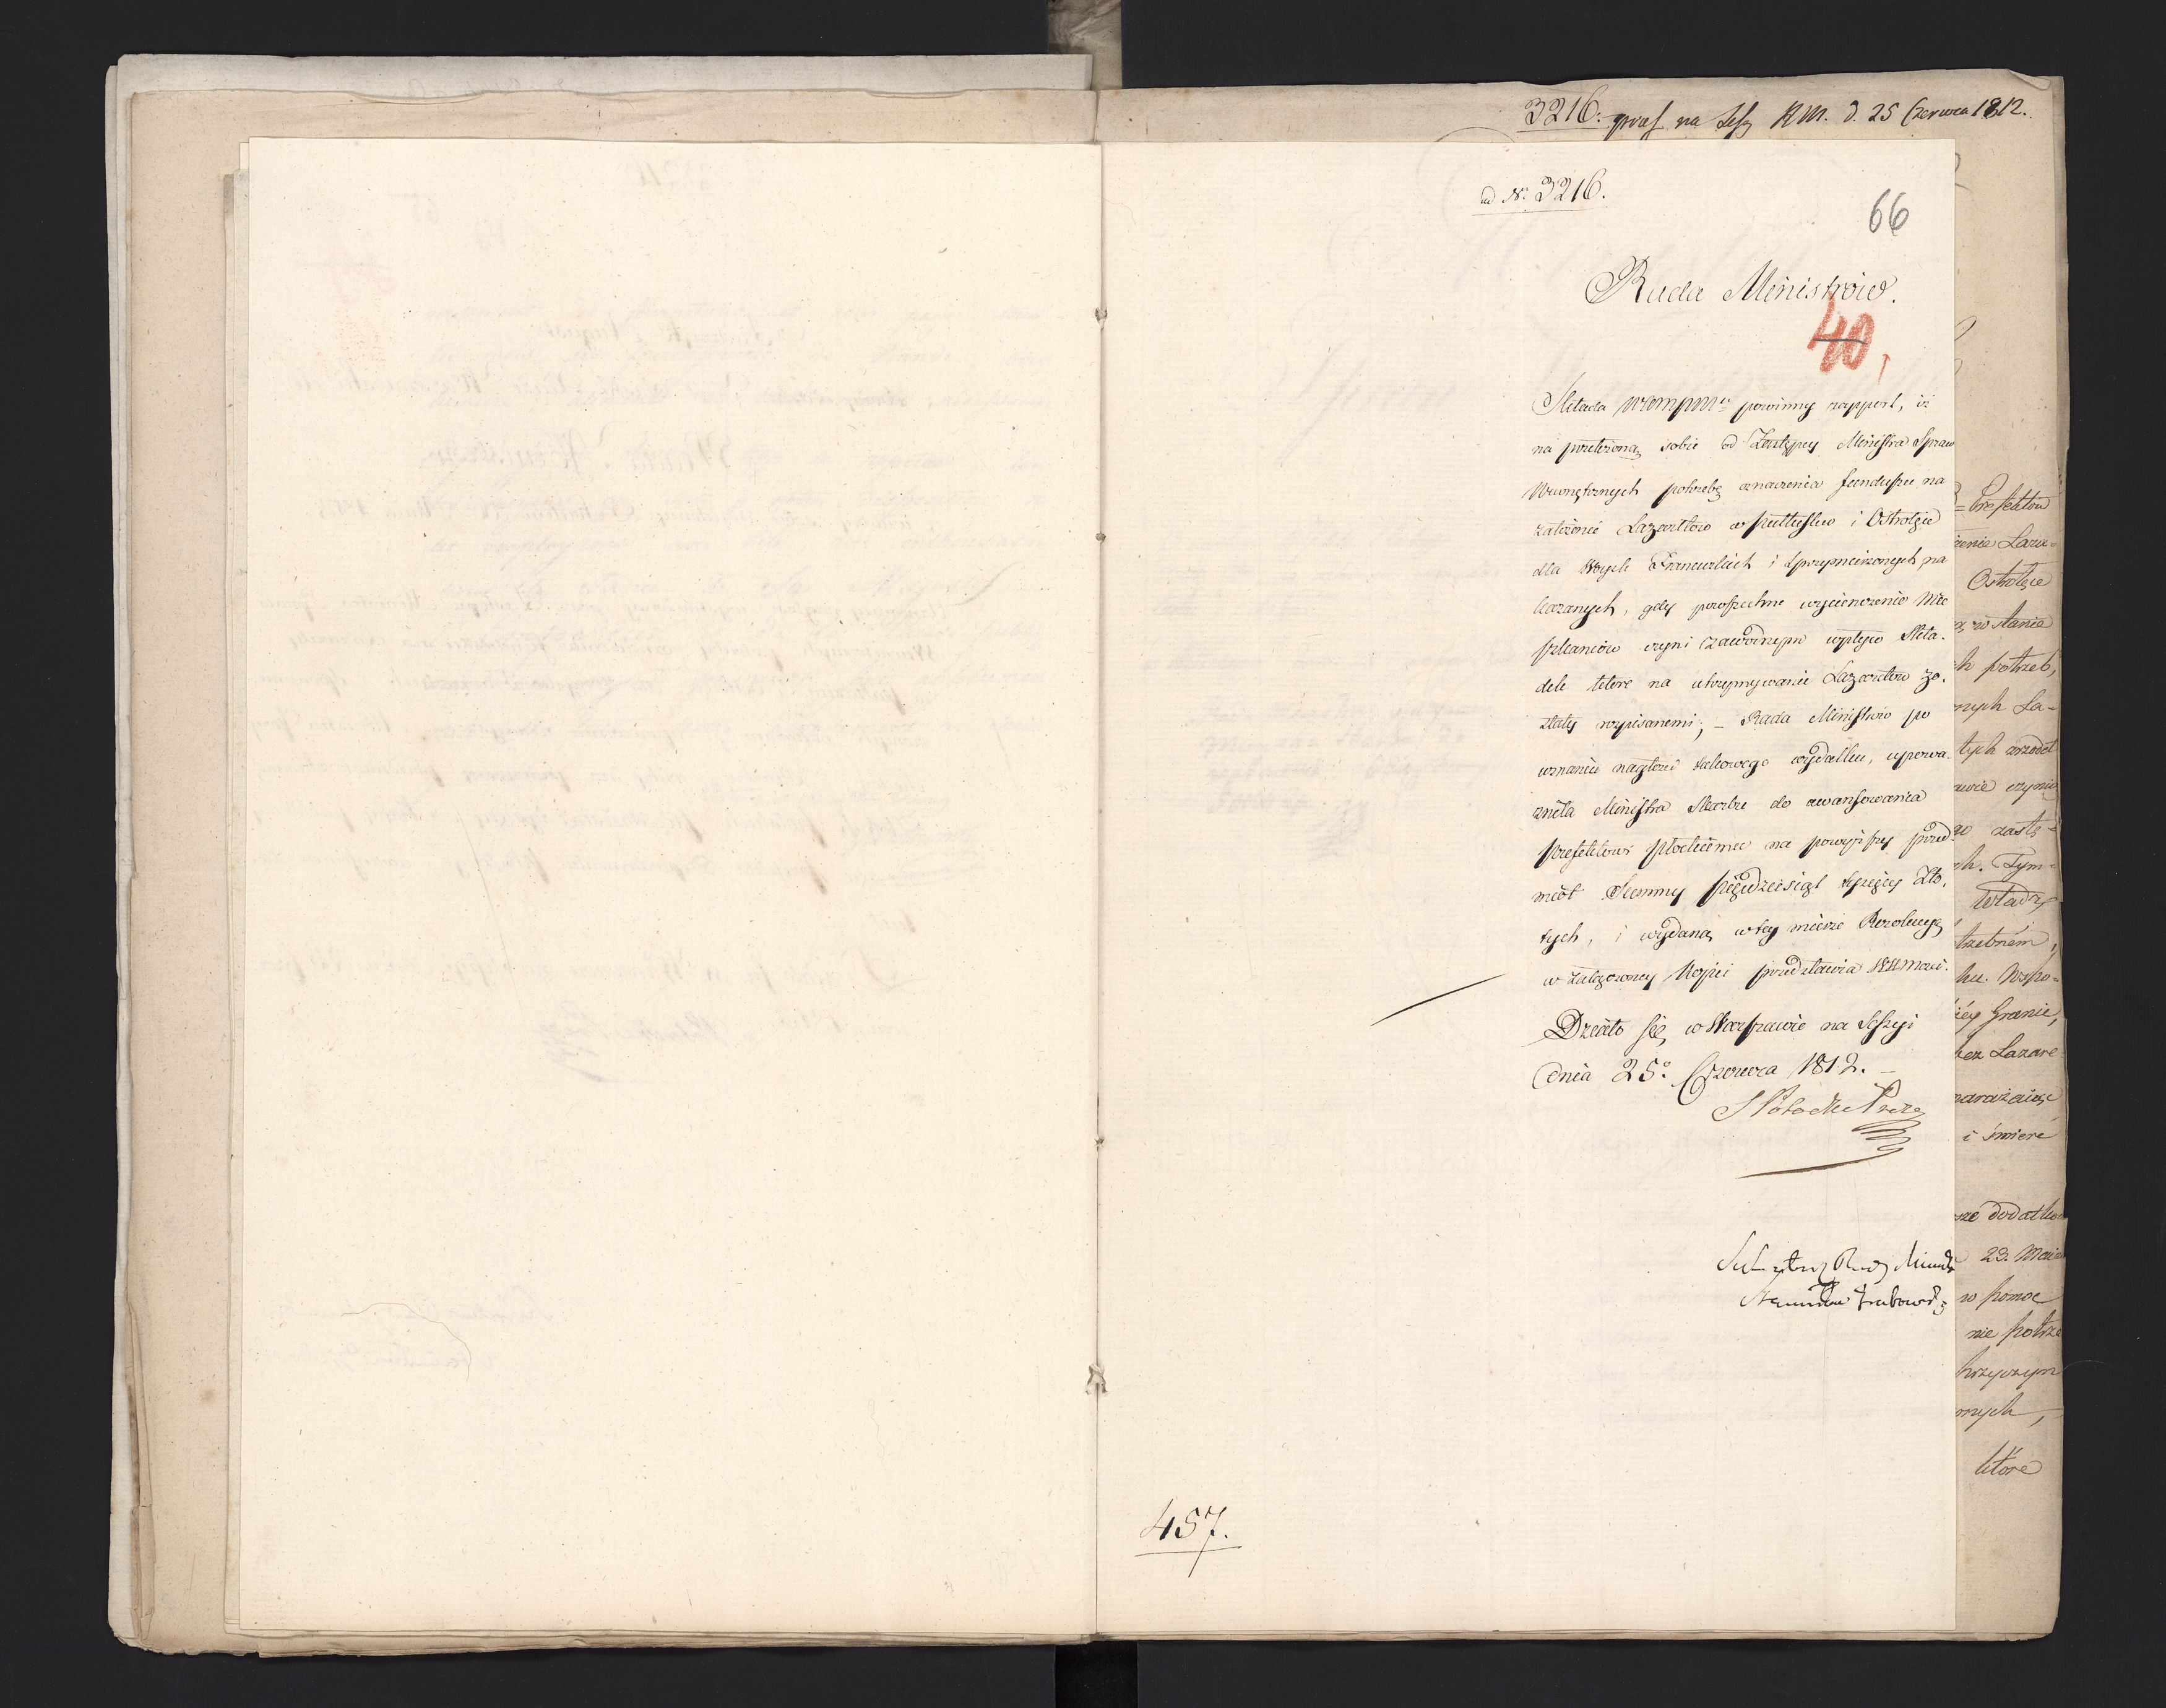 3216. præs na Sess RM. d. 25 Czerwca 1812.
ad Nr. 3216.
66
Rada Ministrów.
40
Składa powinny rapport, iż
na przełożoną sobie od Zastępcy Ministra Spraw
Wewnętrznych potrzebę oznaczenia funduszu na
założenie Lazarettów w Pułtusku i Ostrołęce
dla Woysk Francuzkich i sprzymierzonych na
kazanych, gdy powszechne wycieńczenie Mie
szkańców czyni zawodnym wpływ Skła-
dek które na utrzymywanie Lazarettow zo-
stały rozpisanemi; – Rada Ministrów po
uznaniu nagłości takowego wydatku, upowa-
żniła Ministra Skarbu do awansowania
Prefektowi Płockiemu na powyższy przed-
miot Summy pięćdziesiąt tysięcy Zło-
tych, i wydaną w tey mierze Rezolucyą
w załączoney Kopii przedstawia
Działo się w Warszawie na Sessyi
dnia 25o. Czerwca 1812. –
S Potocki Prez
Sekretarz Rady Ministr
Stanisław Grabowski
457.
Prefektów
żenie Laza-
Ostrołęce
w stanie
potrzeb,
La-
tych źrzódeł
czynią
zastę-
Tym-
Władzy
trzebném,
ku. Wspo-
Granic,
bez Lazare-
narażaiąc
i śmierć
dodatko
23. Maia
w pomoc
nie potrze
przyczyn
nych,
które